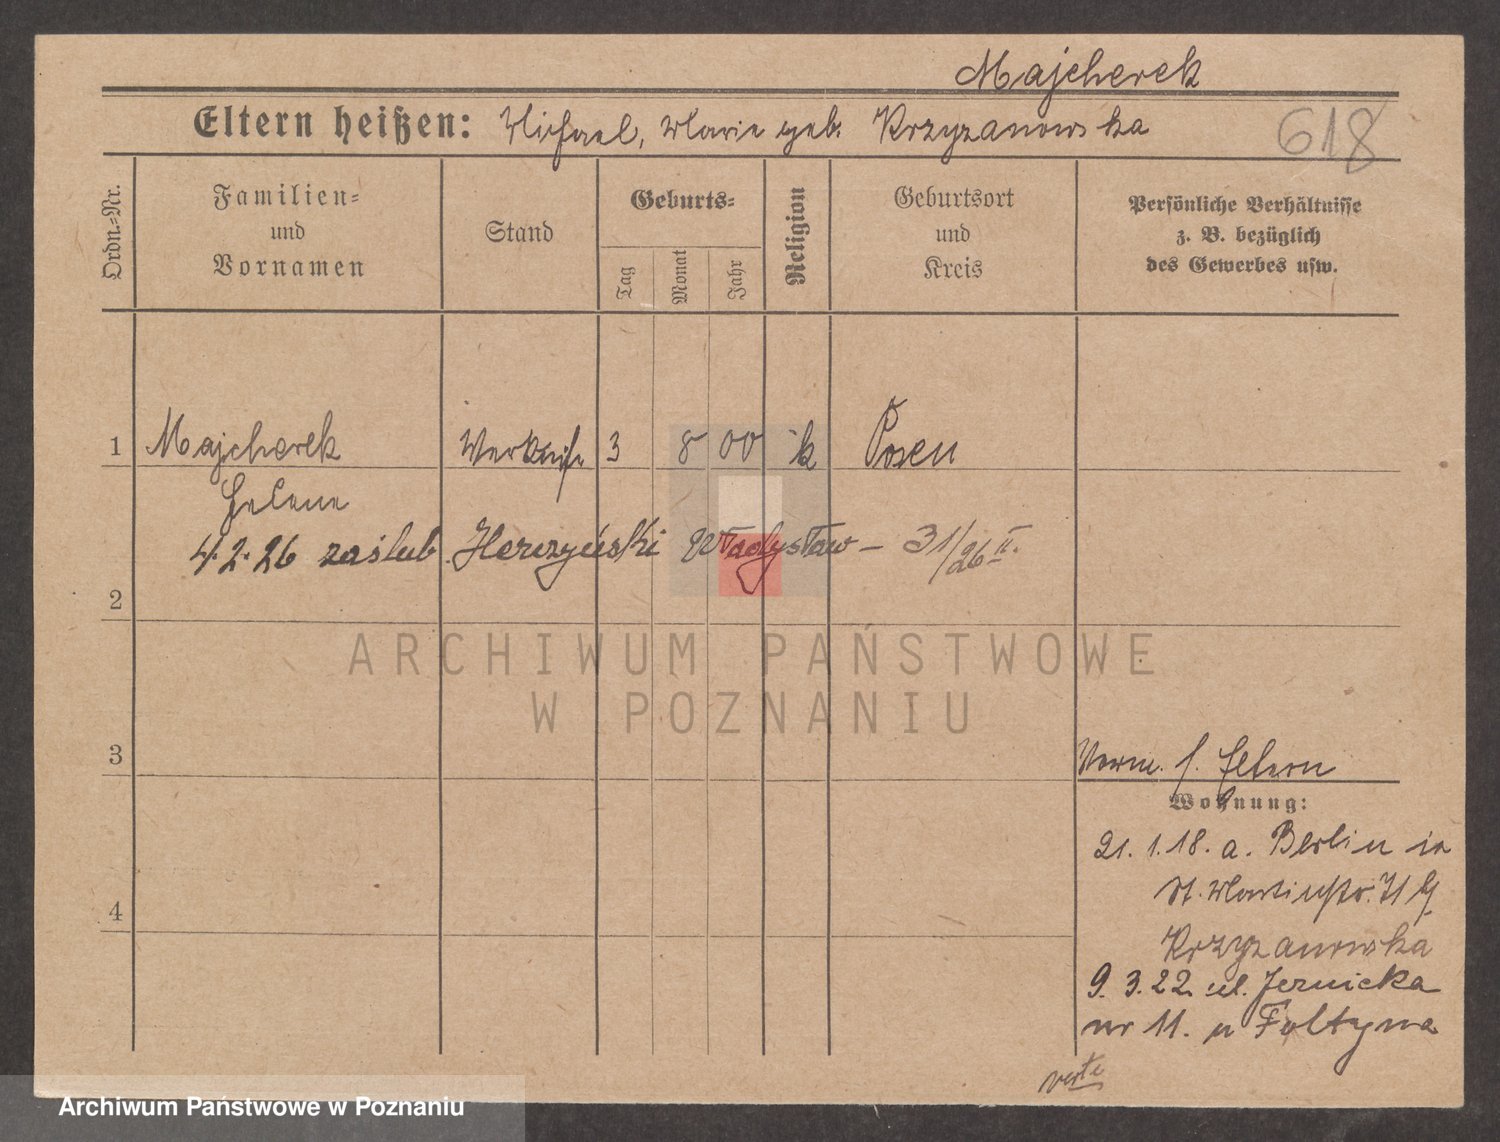 Majcherek
Eltern heißen: Michael, Marie geb. Krzyzanowska
618
Ordn.-Nr.
Familien-
und
Vornamen
Stand
Geburts-
Tag
Monat
Jahr
Religion
Geburtsort
und
Kreis
Persönliche Verhältnisse
z. B. bezüglich
des Gewerbes usw.
1 Majcherek 3 8 00 k Posen
Helene
4.2.26 zaślub. Herczyński Władysław – 31/26 II.
2
ARCHIWUM PAŃSTWOWE
W POZNANIU
3
Verm. s. Eltern
Wohnung:
21. 1. 18. a. Berlin in
St. Martinstr.
Krzyzanowska
4
9. 3. 22 ul. Jeznicka
nr 11. u Foltyna
verte
Archiwum Państwowe w Poznaniu